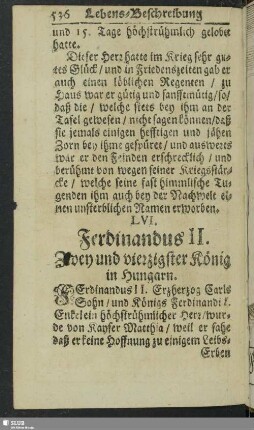 536 Lebens-Beschreibung
und 15. Tage höchstrühmlich gelobet
hatte.
Dieser Herr hatte im Krieg sehr gu-
tes Glück / und in Friedenszeiten gab er
auch einen löblichen Regenten / zu
Haus war er gütig und sanfftmütig / so /
daß die / welche stets bey ihm an der
Tafel gewesen / nicht sagen können / daß
sie jemals einigen hefftigen und jähen
Zorn bey ihme gespüret / und auswerts
war er den Feinden erschrecklich / und
berühmt von wegen seiner Kriegsstär-
cke / welche seine fast himmlische Tu-
genden ihm auch bey der Nachwelt ei-
nen unsterblichen Namen erworben.
LVI.
Ferdinandus II.
Zwey und vierzigster König
in Hungarn.
FErdinandus II. Erzherzog Carls
Sohn / und Königs Ferdinandi I.
Enckelein höchstrühmlicher Herr / wur-
de von Kayser Matthia / weil er sahe
daß er keine Hoffnung zu einigem Leibs-
Erben
SLUB